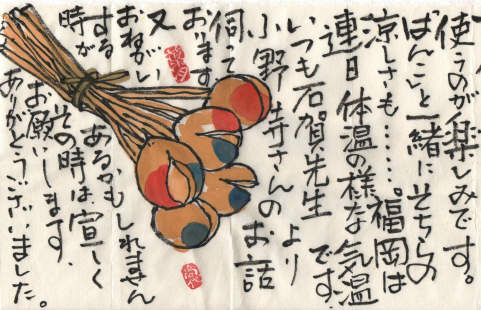 使うのが楽しみです。
一緒にそちらの
涼しさも……。福岡は
連日体温の様な気温です。
いつも石賀先生より
小野寺さんのお話
伺って
おります。
又
おねがい
する
時が
あるかもしれません
その時は宜しく
お願いします。
ありがとうございました。